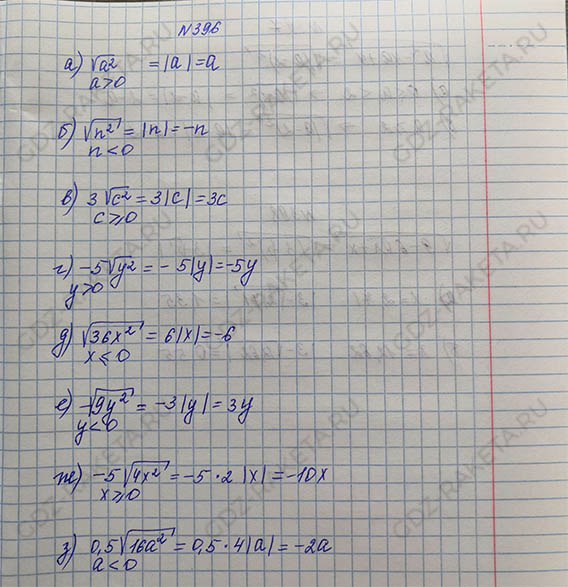 N396
а) √a² = |a| = a
a>0
б) √n² = |n| = -n
n<0
в) 3√c² = 3|c| = 3c
c⩾0
г) -5√y² = -5|y| = -5y
y>0
д) √36x² = 6|x| = -6
x⩽0
е) -√9y² = -3|y| = 3y
y<0
ж) -5√4x² = -5·2|x| = -10x
x⩾0
з) 0,5√16a² = 0,5·4|a| = -2a
a<0
GDZ-RAKETA.RU